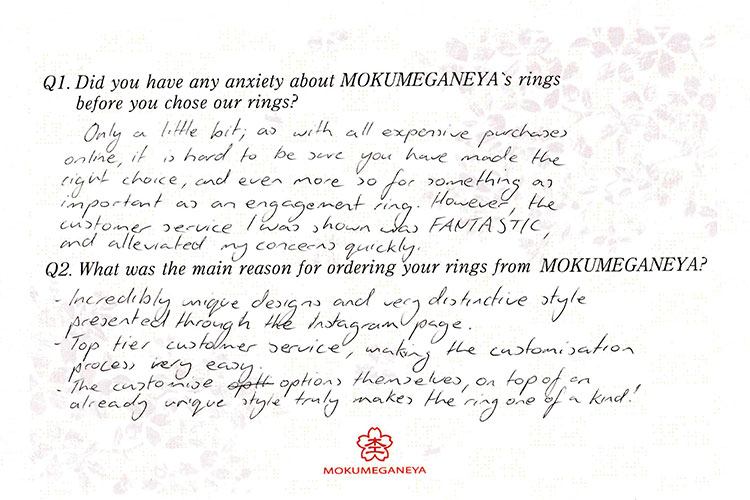 Q1. Did you have any anxiety about MOKUMEGANEYA`s rings
before you chose our rings?
Only a little bit; as with all expensive purchases
online, it is hard to be sure you have made the
right choice, and even more so for something as
important as an engagement ring. However, the
customer service I was shown was FANTASTIC,
and alleviated my concerns quickly.
Q2. What was the main reason for ordering your rings from MOKUMEGANEYA?
- Incredibly unique designs and very distinctive style
presented through the Instagram page.
- Top tier customer service, making the customisation
process very easy.
- The customise options themselves, on top of an
already unique style truly makes the ring one of a kind!
MOKUMEGANEYA